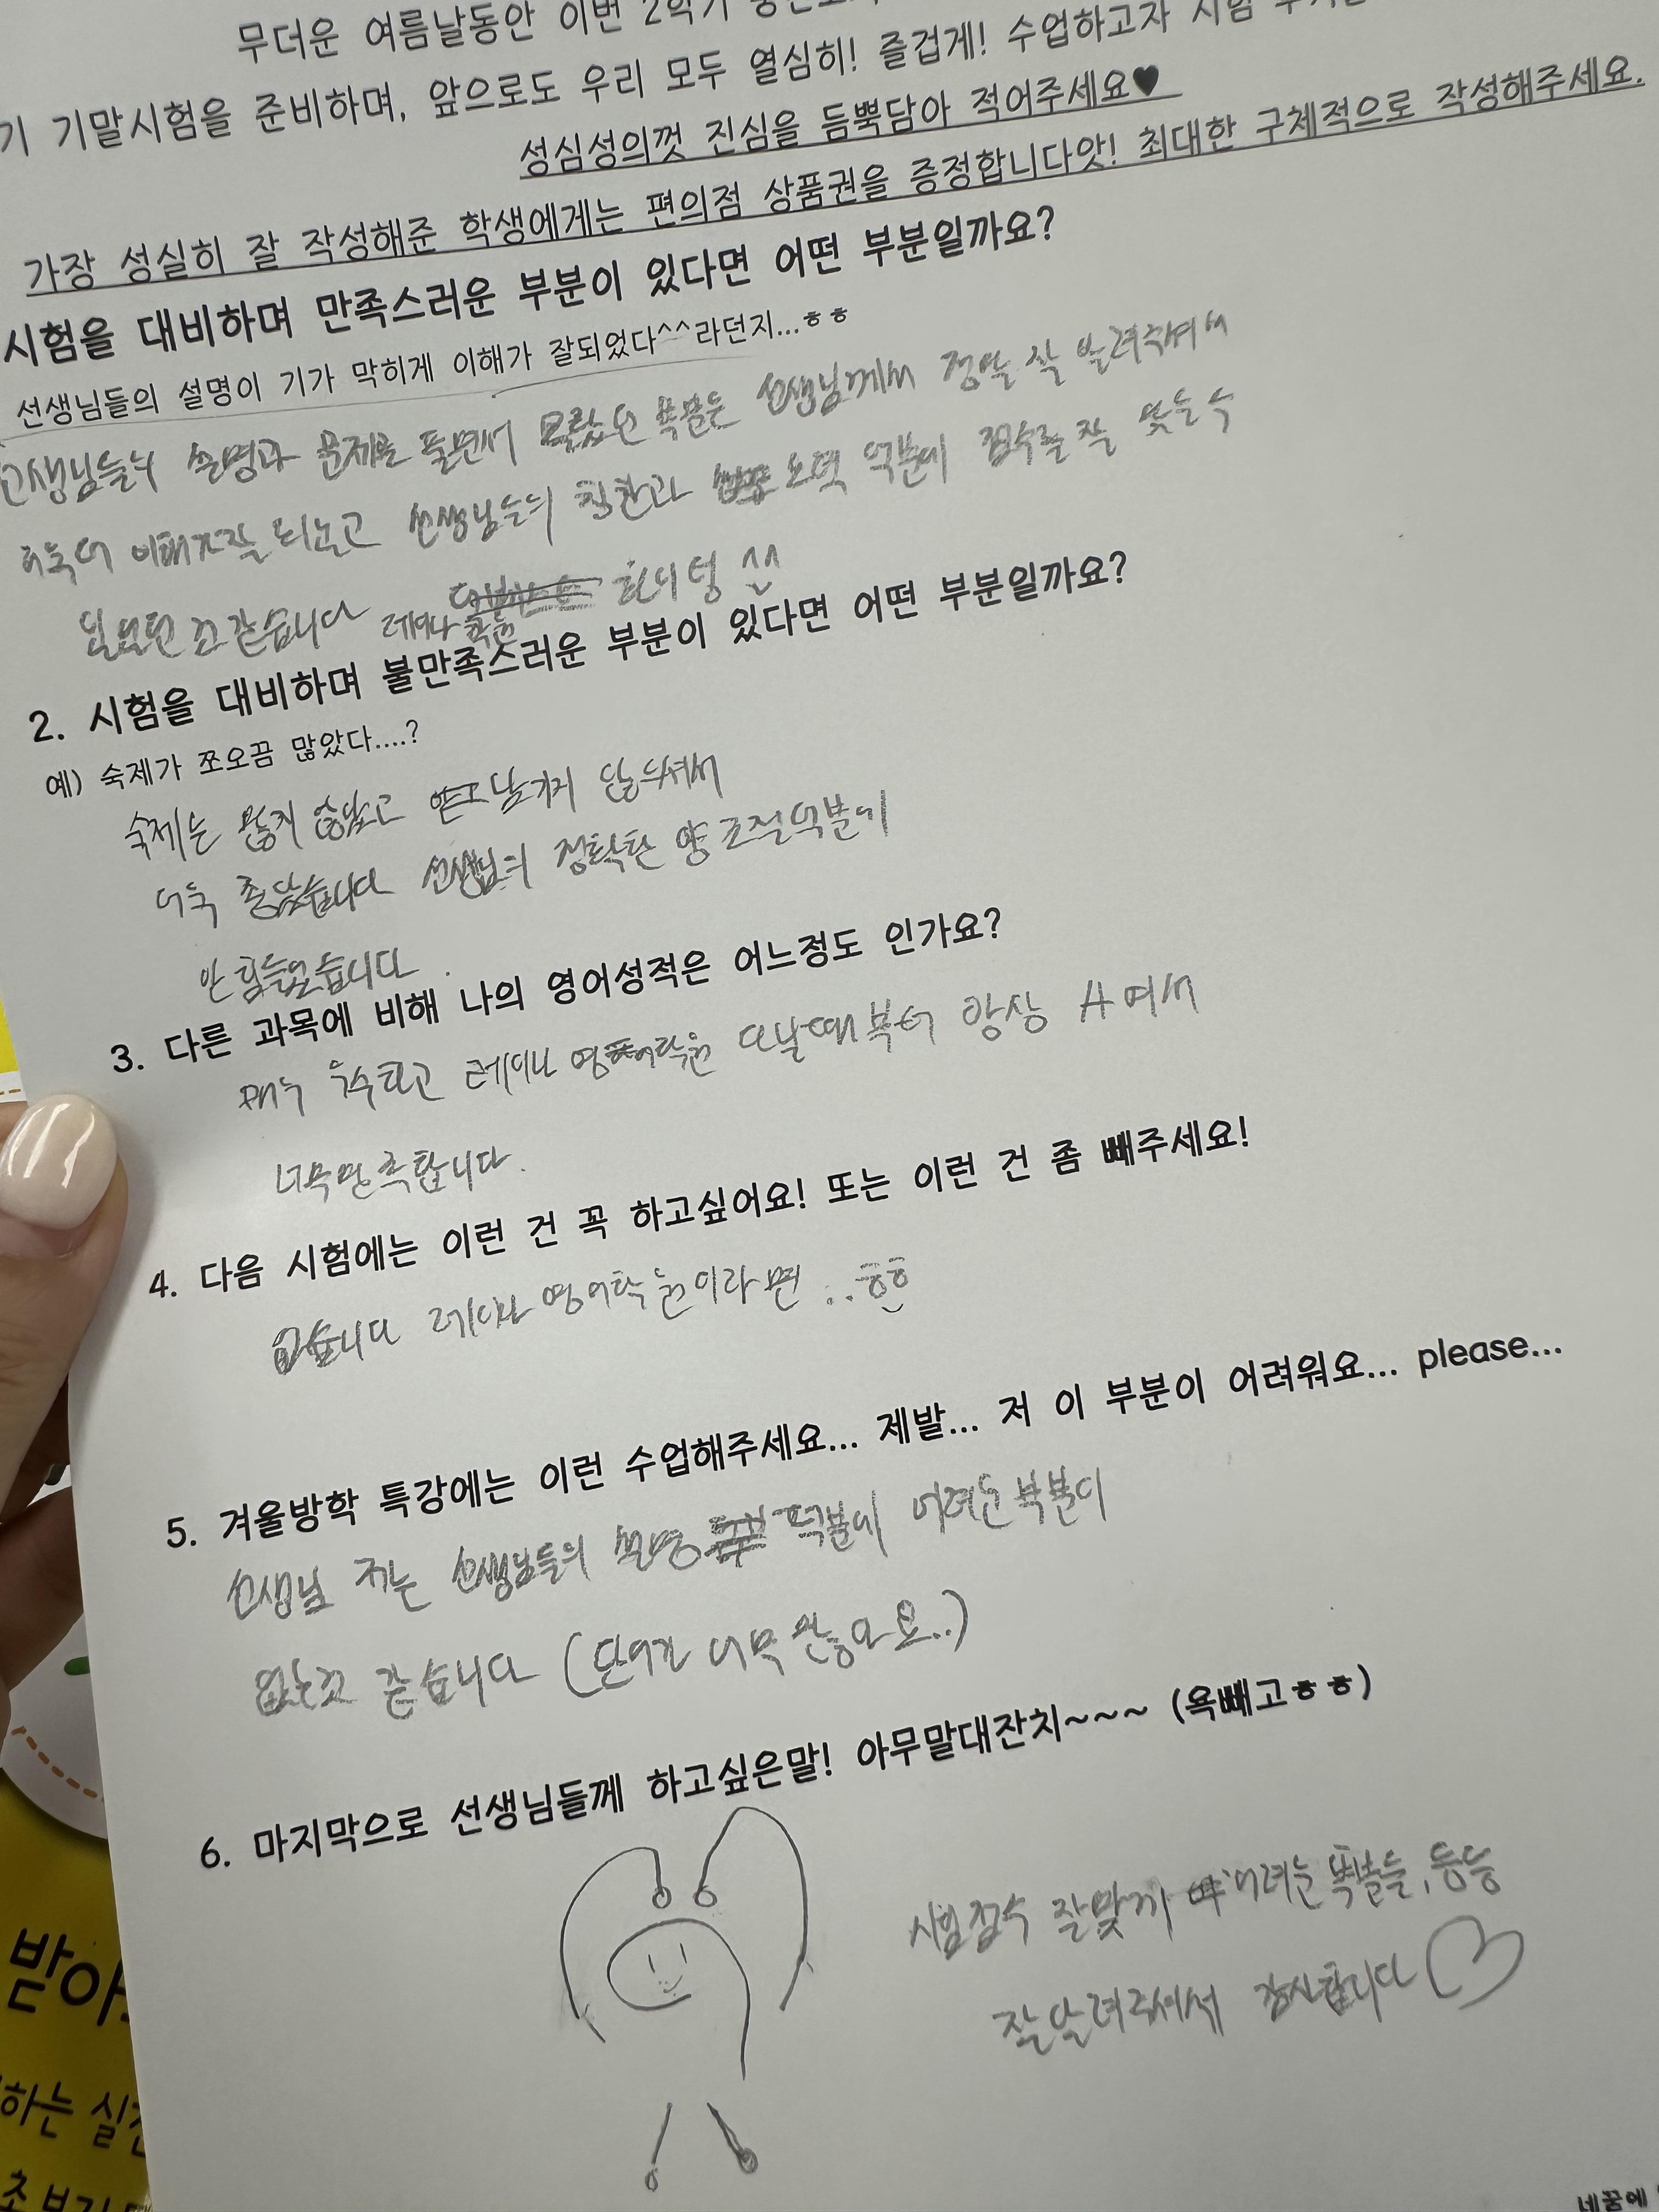 무더운 여름날동안 이번 2학기
기 기말시험을 준비하며, 앞으로도 우리 모두 열심히! 즐겁게! 수업하고자 시험
성심성의껏 진심을 듬뿍담아 적어주세요♥
가장 성실히 잘 작성해준 학생에게는 편의점 상품권을 증정합니다앗! 최대한 구체적으로 작성해주세요.
시험을 대비하며 만족스러운 부분이 있다면 어떤 부분일까요?
선생님들의 설명이 기가 막히게 이해가 잘되었다^^라던지...ㅎㅎ
선생님들의 설명과 문제를 풀면서 몰랐던 부분든 선생님께서 정말 잘 알려주셔서
더욱더 이해가잘 되었고 선생님들의 칭찬과 노력 덕분에 점수를 잘 맞을 수
있었던 것 같습니다 레이나 학원 화이팅 ^^
2. 시험을 대비하며 불만족스러운 부분이 있다면 어떤 부분일까요?
예) 숙제가 쪼오끔 많았다....?
숙제는 많지 않았고 남기지 않으셔서
더욱 좋았습니다 선생님의 정확한 양 조절덕분에
안 힘들었습니다.
3. 다른 과목에 비해 나의 영어성적은 어느정도 인가요?
매우 우수하고 레이나 영어학원 다닐때부터 항상 A여서
너무만족합니다.
4. 다음 시험에는 이런 건 꼭 하고싶어요! 또는 이런 건 좀 빼주세요!
없습니다 레이나 영어학원이라면 ..ㅎㅎ
5. 겨울방학 특강에는 이런 수업해주세요... 제발... 저 이 부분이 어려워요... please...
선생님 저는 선생님들의 설명 덕분에 어려운 부분이
없는것 같습니다 (단어가 너무 많아요..)
6. 마지막으로 선생님들께 하고싶은말! 아무말대잔치~~~ (욕빼고ㅎㅎ)
시험점수 잘맞게 어려운 부분들, 등등
잘알려주셔서 감사합니다♡
받아
하는 실전
네꿈에